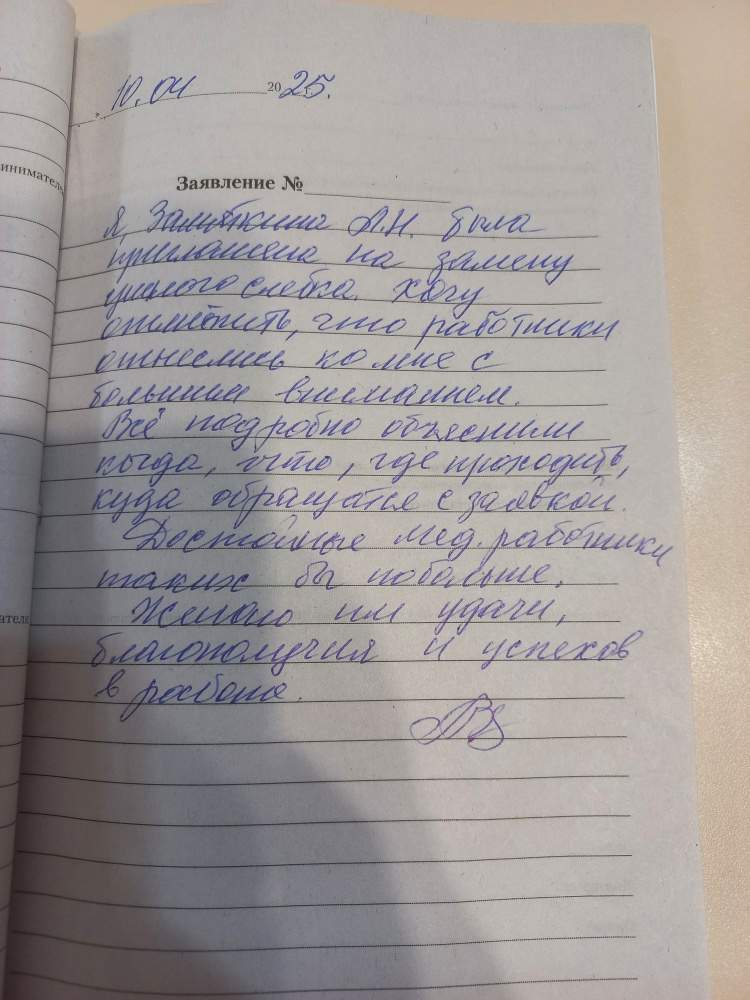 10.04 2025.
инимател
Заявление №
Я, А.Н. была
приглашена на замену
ушного слебка. хочу
отметить, что работники
отнеслись ко мне с
большим вниманием.
Всё подробно объяснили
когда, что, где проходить,
куда обращатся с заявкой.
Достойные мед. работники
таких бы побольше.
ателя
Желаю им удачи,
благополучия и успехов
в работе.